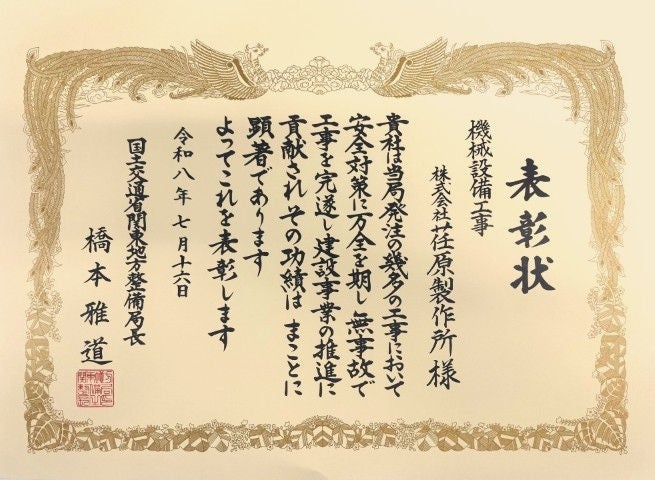 表彰状
機械設備工事
株式会社荏原製作所様
貴社は当局発注の幾多の工事において
安全対策に万全を期し無事故で
工事を完遂し建設事業の推進に
貢献されその功績はまことに
顕著であります
よってこれを表彰します
令和八年七月十六日
国土交通省関東地方整備局長
橋本雅道